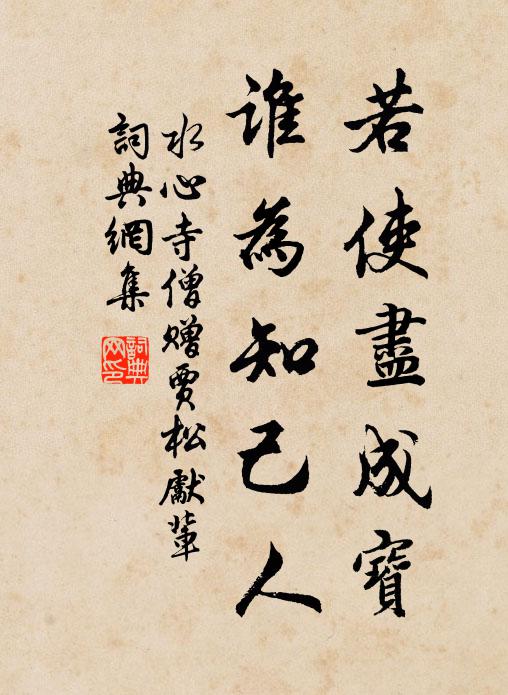 若使盡成寶
誰為知己人
水心寺僧贈賈松獻輩
詞典網集
詞典網印